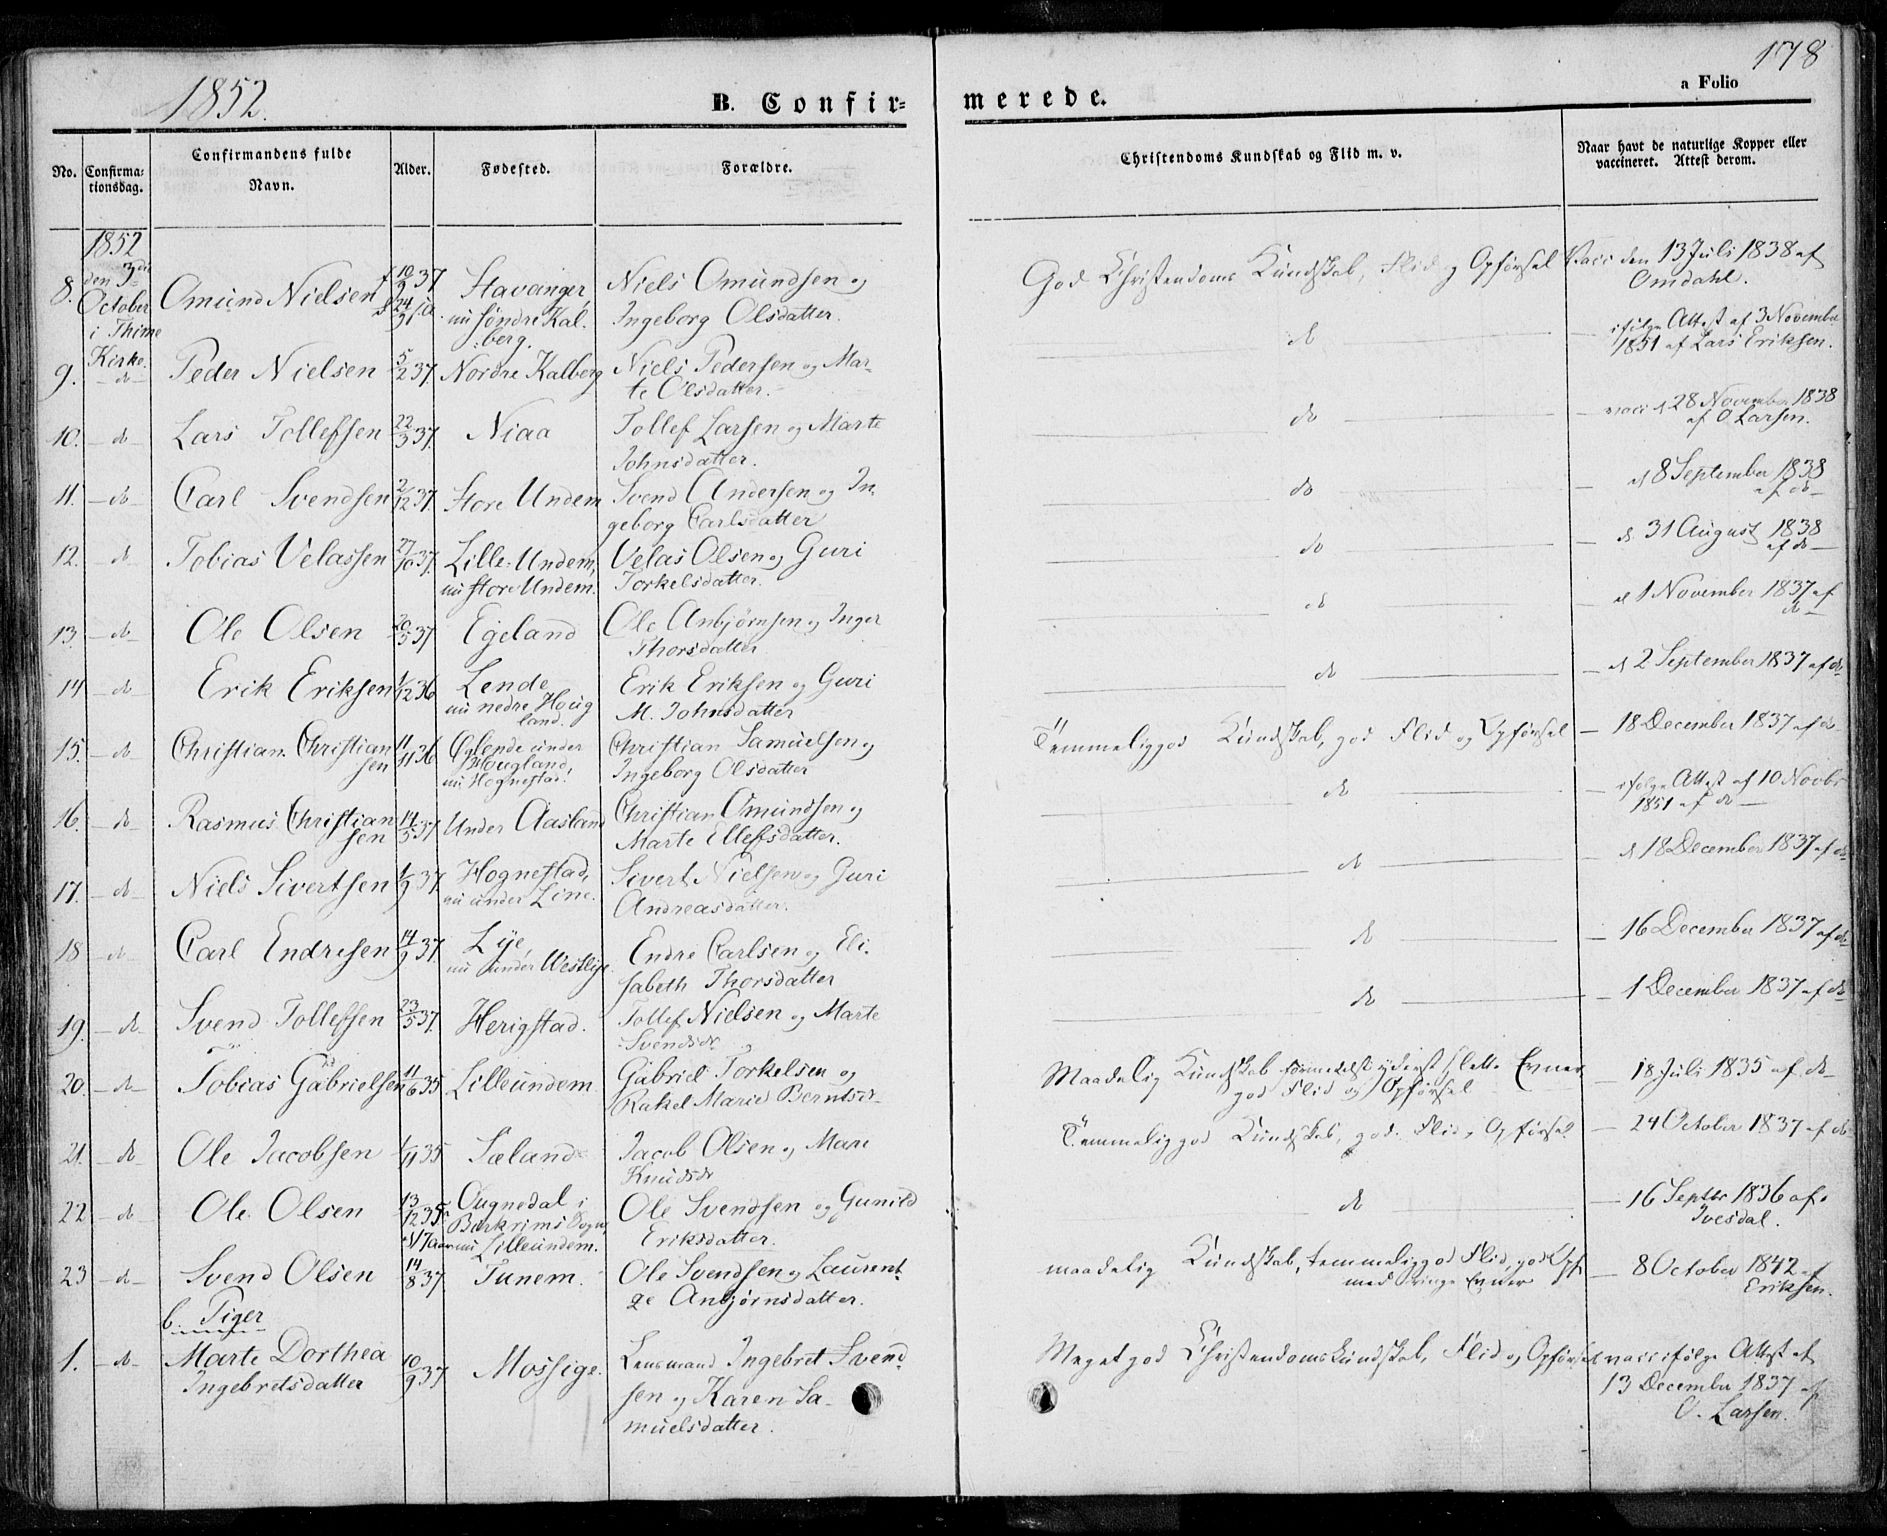 1852.
B. Confir=
merede.
178
a Folio
No.
Confirma-
tionsdag.
Confirmandens fulde
Navn.
Alder.
Fødested.
Forældre.
Christendoms Kundskab og Flid m. v.
Naar havt de naturlige Kopper eller
vaccineret. Attest derom.
1852
den 3die
October
i Thime
Kirke.
8. Omund Nielsen 10/9 37 Stavanger, Niels Omundsen og God Christendoms Kundskab, Flid og Opførsel Vacc den 13 Juli 1838 af
nu søndre Kal- Ingeborg Olsdatter. Omdahl.
berg.
9. -do- Peder Nielsen 5/2 37. Nordre Kalberg Niels Pedersen og Mar- do ifølge Attest af 3 November
te Olsdatter. 1851 af Lars Eriksen.
10. -do- Lars Tollefsen 22/3 37. Niaa Tollef Larsen og Marte do vacc d 28 November 1838
Johnsdatter. af O Larsen.
11. -do- Carl Svendsen 2/12 37. Store Undem Svend Andersen og In- do d 8 September 1838
geborg Carlsdatter af do-
12. -do- Tobias Velassen 27/10 37. Lille-Undem, Velas Olsen og Guri do d. 31 August 1838
nu store Undem. Torkelsdatter. af do-
13. -do- Ole Olsen 20/5 37 Egeland Ole Anbjørnsen og Inger do d 1 November 1837 af
Thorsdatter do-
14 -do- Erik Eriksen 1/12 36 Lende Erik Eriksen og Guri do d 2 September 1837 af do
nu nedre Houg M. Johnsdatter
land.
15. -do- Christian Christian 11/11 36 Lende under Christian Samuelsen og Temmelig god Kundskab, god Flid og Opførsel 18 December 1837 af do.
sen Hougland, Ingeborg Olsdatter
nu Hognestad.
16. -do- Rasmus Christian 14/5 37. Under Aasland Christian Omundsen og do ifølge Attest af 10 Novbr
sen Marte Ellefsdatter. 1851 af do-
17. -do- Niels Sivertsen 1/9 37. Hognestad, Sivert Nielsen og Guri do d 18 December 1837 af do
nu under Line. Andreasdatter.
18 -do- Carl Endresen 14/9 37. Lye, Endre Carlsen og Eli- do 16 December 1837 af do
nu under Westlye. sabeth Thorsdatter
19. -do- Svend Tollefsen 23/5 37. Herigstad. Tollef Nielsen og Marte do 1 December 1837 af do
Svendsdr
20. -do- Tobias Gabrielsen 11/6 35 Lilleundem. Gabriel Torkelsen og Maadelig Kundskab formedelst yderst slette Evner 18 Juli 1835 af do-
Rakel Marie Berntsdr god Flid og Opførsel
21. do Ole Jacobsen 1/11 35 Sæland Jacob Olsen og Mari Temmelig god Kundskab, god Flid, Opførsel 24 October 1837 af do
Knudsdr
22 -do- Ole Olsen 13/12 35 Ougnedal i Ole Svendsen og Gunild do 16 Septbr 1836 af
Birkrims Sogn, Eriksdatter. Ivesdal.
nu Lilleundem.
23 -do- Svend Olsen 14/8 37 Tunem. Ole Svendsen og Laurent maadelig Kundskab, temmelig god Flid, god Opf. 8 October 1842 af
ze Anbjørnsdatter. med ringe Evner Eriksen.
b. Piger
1. -do- Marte Dorthea 10/9 37 Mossige. Lensmand Ingebret Svend Meget god Christendomskundskab, Flid og Opførsel vacc ifølge Attest af
Ingebretsdatter sen og Karen Sa- 13 December 1837 af
muelsdatter. O. Larsen.